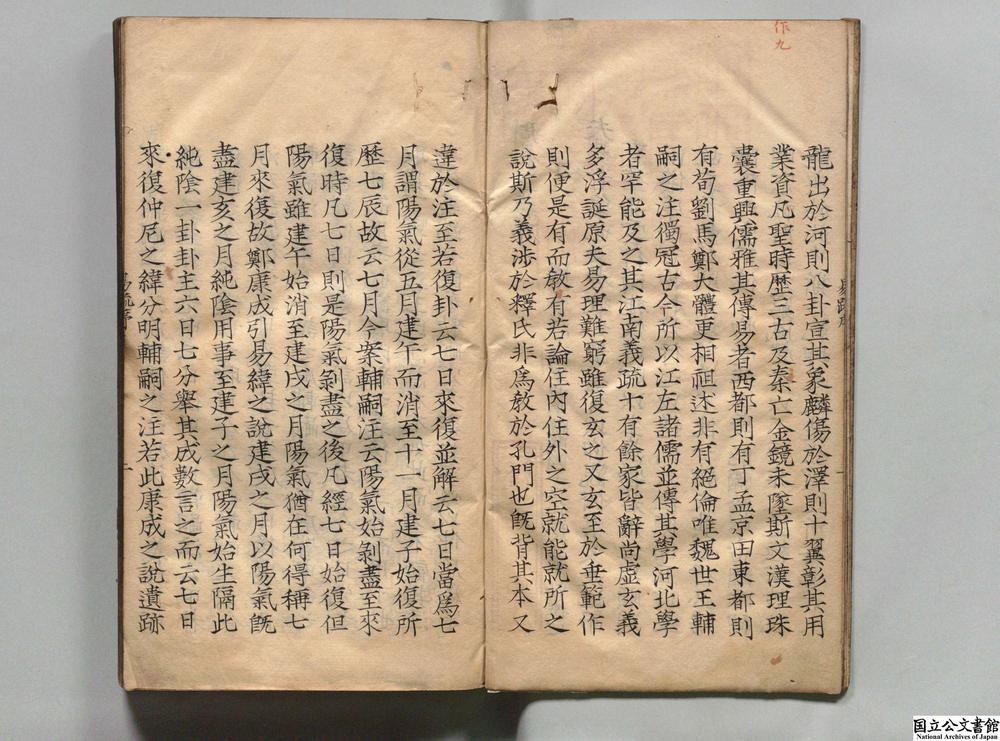 作九
龍出於河則八卦宣其象麟傷於澤則十翼彰其用
業資凡聖時歴三古及秦亡金鏡未墜斯文漢理珠
囊重興儒雅其傳易者西都則有丁孟京田東都則
有荀劉馬鄭大體更相祖述非有絕倫唯魏世王輔
嗣之注獨冠古今所以江左諸儒並傳其學河北學
者罕能及之其江南義疏十有餘家皆辭尚虛玄義
多浮誕原夫易理難窮雖復玄之又玄至於垂範作
則便是有而敎有若論住內住外之空就能就所之
說斯乃義涉於釋氏非爲敎於孔門也旣背其本又
違於注至若復卦云七日來復並解云七日當爲七
月謂陽氣從五月建午而消至十一月建子始復所
歴七辰故云七月今案輔嗣注云陽氣始剝盡至來
復時凡七日則是陽氣剝盡之後凡經七日始復但
陽氣雖建午始消至建戌之月陽氣猶在何得稱七
月來復故鄭康成引易緯之說建戌之月以陽氣旣
盡建亥之月純陰用事至建子之月陽氣始生隔此
純陰一卦卦主六日七分舉其成數言之而云七日
來復仲尼之緯分明輔嗣之注若此康成之說遺跡
国立公文書館
National Archives of Japan